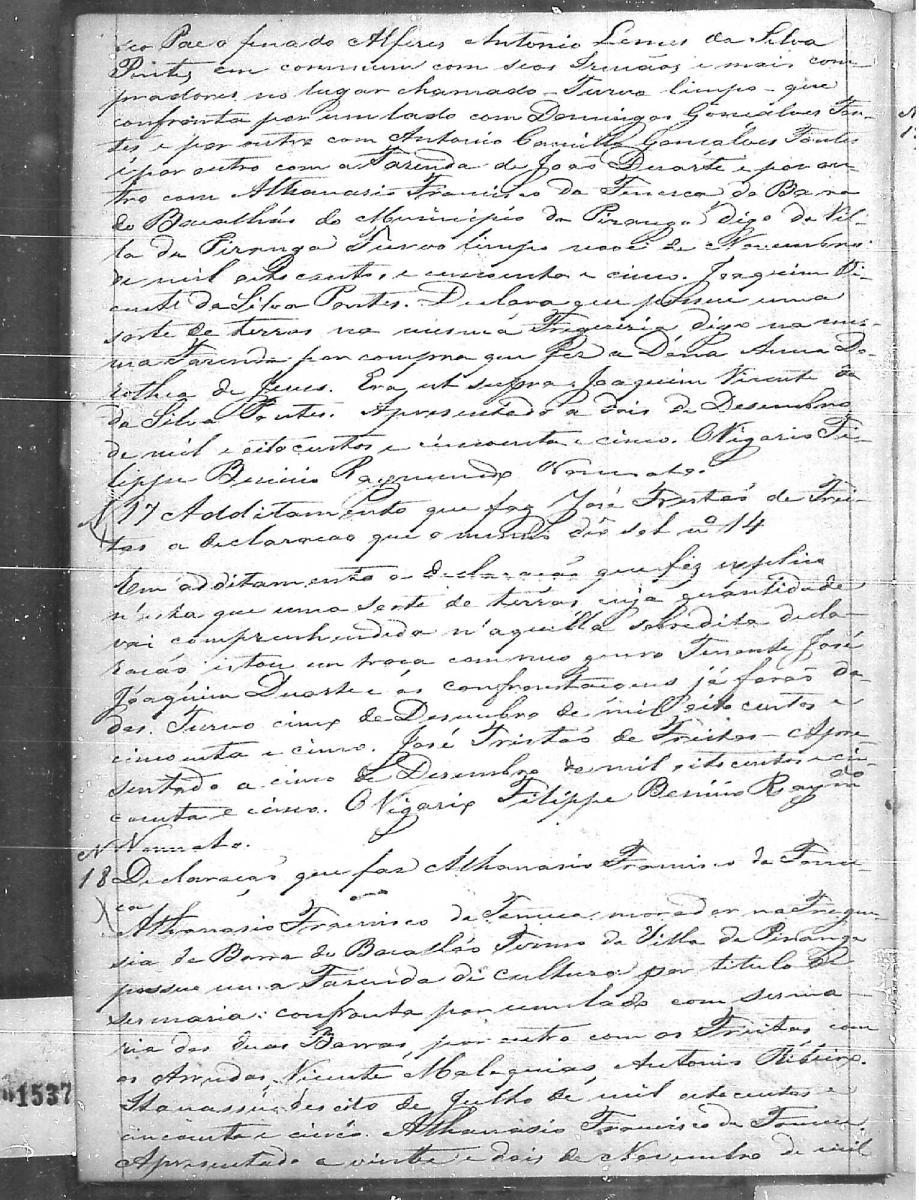 seo Pae o finado Alferes Antonio Lemes da Silva
Pontes, em commum com seos Irmãos, e mais com-
pradores no lugar chamado - Turvo limpo - que
confronta por um lado com Domingos Gonçalves Fon-
tes e por outro com Antonio Camillo Gonçalves Fontes
e por outro com a Fazenda de João Duarte e por ou-
tro com Athanasio Francisco da Fonseca da Barra
do Bacalháo do Municipio da Piranga, digo da Vil-
la da Piranga Turvo limpo de Novembro
de mil oito centos e cincoenta e cinco. Joaquim Vi-
cente da Silva Pontes. Declara que possue uma
sorte de terras na mesma Freguesia digo na mes-
ma Fazenda por compra que fez a Dona Anna Do-
rothea de Jesus. Era ut supra. Joaquim Vicente da
da Silva Pontes. Apresentado a dois de Desembro
de mil e oito centos e cincoenta e cinco. O Vigario Fi-
lippe Benicio Raymundo Nonnato.
N 17 Additamento que faz José Tristão de Frei-
tas a declaracão que o mesmo deo sob nº 14
Em additamento a declaracão que fez explica
n'esta que uma sorte de terras cuja quantidade
vai comprehendida n'aquella sobredita decla-
racão estou em troca com meo genro Tenente José
Joaquim Duarte e as confrontaçoens já forão da-
das. Turvo cinco de Desembro de mil oito centos e
cincoenta e cinco. José Tristão de Freitas - Apre-
sentado a cinco de Desembro de mil oito centos e cin-
coenta e cinco. O Vigario Filippe Benicio Raymdo
Nonnato.
N 18 Declaracão que faz Athanasio Francisco da Fonse-
ca
Athanasio Francisco da Fonseca, morador na Fregue-
sia da Barra do Bacalháo Termo da Villa da Piranga
possue uma Fazenda de cultura por titulo de
sesmaria: confronta por um lado com sesma-
ria das duas Barras, por outro com os Freitas, com
os Arrudas, Vicente Malaquias, Antonio Ribeiro.
desoito de Julho de mil oito centos e
cincoenta e cinco. Athanasio Francisco da Fonseca.
Apresentado a vinte e dois de Novembro de mil
1537